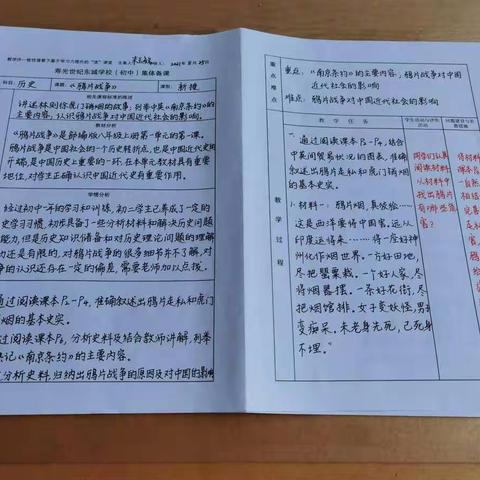 教学评一致性背景下基于学习力提升的“索”课堂 主备人 审核人: 2022年8月25日
寿光世纪东城学校(初中)集体备课
科目: 历史 课题:《鸦片战争》 课型: 新授
相关课程标准的陈述
讲述林则徐虎门销烟的故事;列举中英《南京条约》的
主要内容,认识鸦片战争对中国近代社会的影响。
教材分析
《鸦片战争》是部编版八年级上册第一单元的第一课。
鸦片战争是中国社会的一个历史转折点,也是中国近代史的
开端,是中国历史上重要的一环,在本单元教材具有重要
地位,对学生正确认识中国近代史有重要作用。
学情分析
经过初中一年的学习和训练,初二学生已养成了一定的
史学习习惯,初步具备了一些分析材料和解决问题历史问题
能力,但是历史知识储备和对历史理论问题的理解
力还是有限的,对鸦片战争的很多细节并不了解,对
争的认识还存在一定的偏差,需要老师加以点拨。
通过阅读课本P2-P4,准确叙述出鸦片走私和虎门
烟的基本史实。
过阅读课本P4,分析史料及结合教师讲解,列举
记《南京条约》的主要内容。
分析史料,归纳出鸦片战争的原因及对中国的影响
重点难点
重点:《南京条约》的主要内容,鸦片战争对中国
近代社会的影响
难点:鸦片战争对中国近代社会的影响
教学过程
教 学 任 务
学生活动与评价活动
一、通过阅读课本P2-P4,结合
中英间贸易状况的图表,准确
叙述出鸦片走私和虎门销烟
的基本史实。
1.材料一:鸦片烟,真佽俗……
这是西洋要将中国害。远从
印度运得来……将一座好神
州化作烟世界。一方好田地,
尽把罂粟栽。一个好人家,尽
将烟器摆。一条好花街,尽
把烟馆排。女子变妖怪,男
变痴呆。未老身先死,已死身
不埋。”
同学们认真
阅读材料,
从材料中
找出鸦片
有哪些危
害?
将材料
课本P
自然
完善
是私